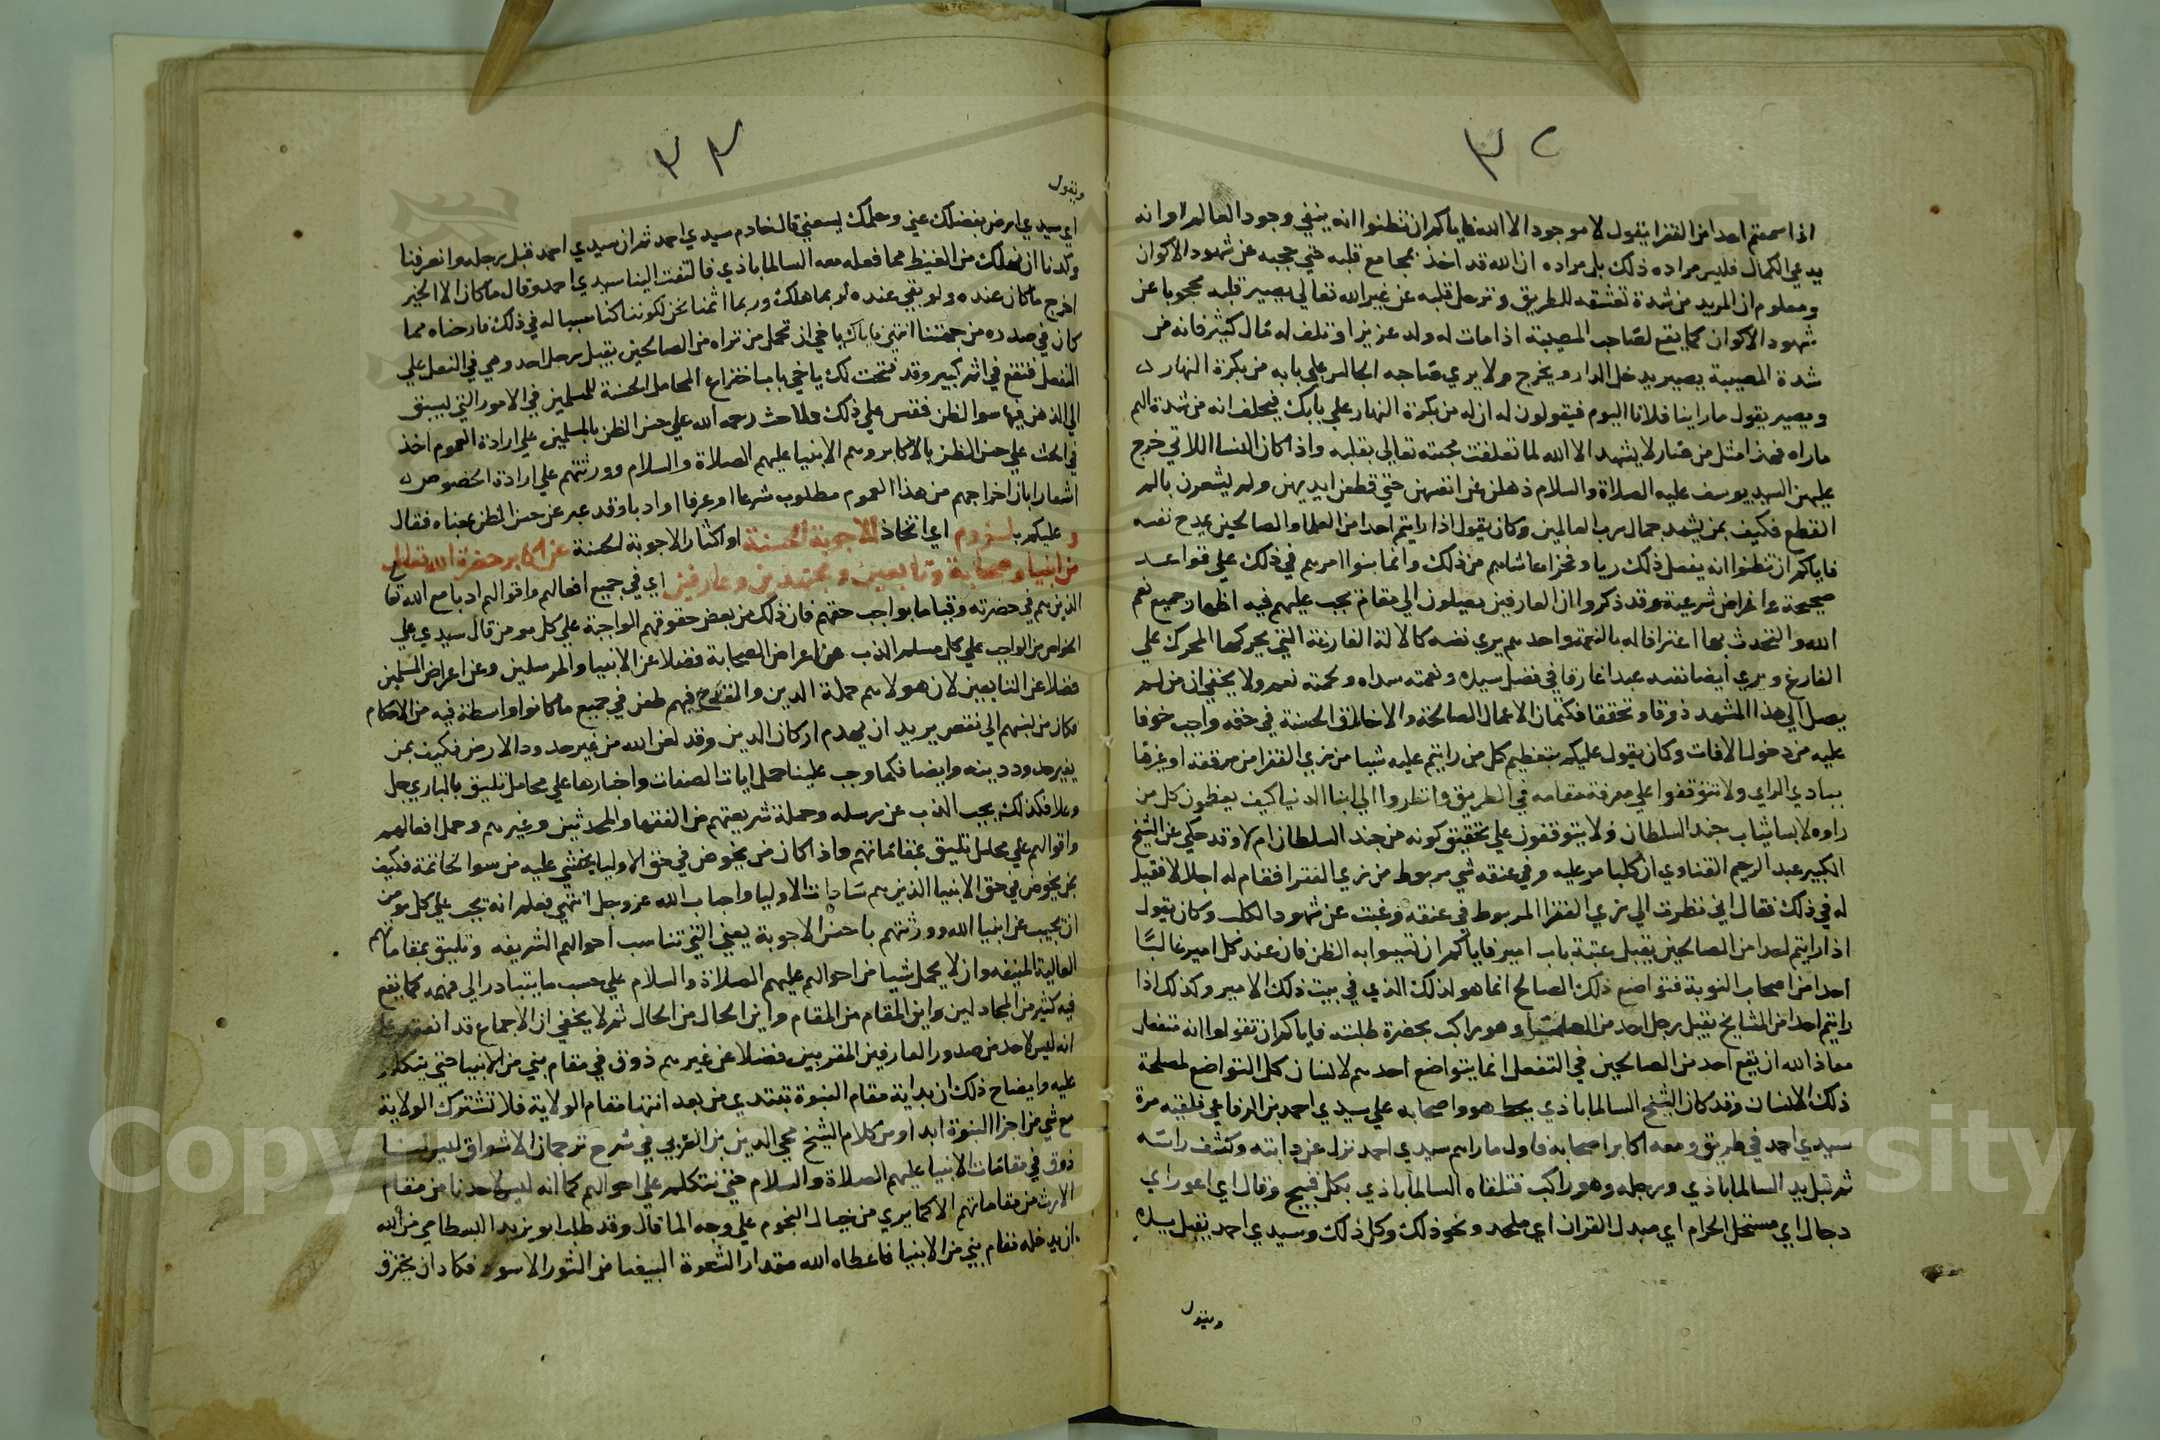 ٣٢
اذا سمعتم احدا من الفقرا يقول لا موجود الا الله فاياكم ان تظنوا انه ينفي وجود العالم او انه
يدعي الكمال فليس مراده ذلك بل مراده ان الله قد اخذ بمجامع قلبه حتي حجبه عن شهود الاكوان
ومعلوم ان المريد من شدة تعشقه للطريق وترحل قلبه عن غير الله تعالي يصير قلبه محجوبا عن
شهود الاكوان كما يقع لصاحب المصيبة اذا مات له ولد عزيز او تلف له مال كثير فانه من
شدة المصيبة يصير يدخل الدار ويخرج ولا يري صاحبه الجالس علي بابه من بكرة النهار
ويصير يقول ما راينا فلانا اليوم فيقولون له انه من بكرة النهار علي بابك فيحلف انه من شدة الهم
ما راه فهذا مثل من صار لا يشهد الا الله لما تعلقت محبته تعالي بقلبه واذا كان النسا اللاتي خرج
عليهن السيد يوسف عليه الصلاة والسلام ذهلن عن انفسهن حتي قطعن ايديهن ولم يشعرن بالم
القطع فكيف بمن يشهد جمال رب العالمين وكان يقول اذا رايتم احدا من العلما والصالحين يمدح نفسه
فاياكم ان تظنوا انه يفعل ذلك ريا وفخرا حاشاهم من ذلك وانما بنوا امرهم في ذلك علي قواعد
صحيحة واغراض شرعية وقد ذكروا ان العارفين يصلون الي مقام يجب عليهم فيه اظهار جميع نعم
الله والتحدث بها اعترافا له بالنعمة واحدهم يري نفسه كالالة الفارغة التي يحركها المحرك علي
الفارغ ويري ايضا نفسه عبدا غارقا في فضل سيده ونعمته سداه ولحمته نعم ولا يخفي ان من لم
يصل الي هذا المشهد ذوقا وتحققا فكتمان الاعمال الصالحة والاخلاق الحسنة في حقه واجب خوفا
عليه من دخول الافات وكان يقول عليكم بتعظيم كل من رايتم عليه شيا من زي الفقرا من مرقعة او غيرها
ببادي الراي ولا تتوقفوا علي معرفة مقامه في الطريق وانظروا الي ابنا الدنيا كيف يعظمون كل من
راوه لابسا ثياب جند السلطان ولا يتوقفون علي تحقيق كونه من جند السلطان ام لا وقد حكي عن الشيخ
الكبير عبد الرحيم القناوي ان كلبا مر عليه وفي عنقه شي مربوط من زي الفقرا فقام له اجلالا فقيل
له في ذلك فقال اني نظرت الي زي الفقرا المربوط في عنقه وغبت عن شهود الكلب وكان يقول
اذا رايتم احدا من الصالحين يقبل عتبة باب امير فاياكم ان تسيوا به الظن فان عند كل امير غالبا
احدا من اصحاب النوبة فتواضع ذلك الصالح انما هو لذلك الذي في بيت ذلك الامير وكذلك اذا
رايتم احدا من المشايخ يقبل رجل احد من وهو راكب بحضرة طلبته فاياكم ان تقولوا انه متفعل
معاذ الله ان يقع احد من الصالحين في التفعل انما يتواضع احدهم لانسان كل التواضع لمصلحة
ذلك الانسان وقد كان الشيخ السالماباذي يحط هو واصحابه علي سيدي احمد بن الرفاعي فلقيه مرة
سيدي احمد في طريق ومعه اكابر اصحابه فاول ما راهم سيدي احمد نزل عن دابته وكشف راسه
ثم قبل يد السالماباذي ورجله وهو راكب فتلقاه السالماباذي بكل قبيح وقال اي اعور اي
دجال اي مستحل الحرام اي مبدل القران اي ملحد ونحو ذلك وكل ذلك وسيدي احمد يقبل يده
ويقول
٣٣
ويقول
اي سيدي ارض بفضلك عني وحلمك يسعني قال خادم سيدي احمد ثم ان سيدي احمد قبل رجله وانصرفنا
وكدنا ان نهلك من الغيظ مما فعله معه السالماباذي فالتفت الينا سيدي احمد وقال ما كان الا الخير
اخرج ما كان عنده ولو بقي عنده لربما هلك وربما اثمنا نحن لكوننا كنا سببا له في ذلك فارضناه مما
كان في صدره من جهتنا انتهي فاياك يا اخي ان تحمل من تراه من الصالحين يقبل رجل احد وهي في النعل علي
التفعل فتقع في اثم كبير وقد فتحت لك يا اخي باب اختراع المحامل الحسنة للمسلمين في الامور التي يسبق
الي الذهن فيها سوا الظن فقس علي ذلك ولما حث رحمه الله علي حسن الظن بالمسلمين علي ارادة العموم اخذ
في الحث علي حسن الظن بالاكابر وهم الانبيا عليهم الصلاة والسلام وورثتهم علي ارادة الخصوص
اشعارا بان اخراجهم من هذا العموم مطلوب شرعا او عرفا او ادبا وقد عبر عن حسن الظن بمعناه فقال
وعليكم بلزوم اي اتخاذ الاجوبة الحسنة او اكثار الاجوبة الحسنة عن اكابر حضرة الله تعالي
من انبيا وصحابة وتابعين ومجتهدين وعارفين اي في جميع افعالهم واقوالهم ادبا مع الله تعا
الذين هم في حضرته وقياما بواجب حقهم فان ذلك من بعض حقوقهم الواجبة علي كل مومن قال سيدي علي
الخواص من الواجب علي كل مسلم الذب عن اعراض الصحابة فضلا عن الانبيا والمرسلين وعن اعراض المسلمين
فضلا عن التابعين لان هولاء هم حملة الدين والقدح فيهم طعن في جميع ما كانوا واسطة فيه من الاحكام
فكان من ينسبهم الي نقص يريد ان يهدم اركان الدين وقد لعن الله من غير حدود الارض فكيف بمن
يغير حدود دينه وايضا فكما وجب علينا حمل ايات الصفات واخبارها علي محامل تليق بالباري جل
وعلا فكذلك يجب الذب عن رسله وحملة شريعتهم من الفقها والمحدثين وغيرهم وحمل افعالهم
واقوالهم علي محامل تليق بمقاماتهم واذا كان من يخوض في حق الاوليا يخشي عليه من سوا الخاتمة فكيف
بمن يخوض في حق الانبيا الذين هم سادات الاوليا واحباب الله عز وجل انتهي فعلم انه يجب علي كل مومن
ان يجيب عن انبيا الله وورثتهم باحسن الاجوبة يعني التي تناسب احوالهم الشريفه وتليق بمقاماتهم
العالية المنيفه وان لا يحمل شيا من احوالهم عليهم الصلاة والسلام علي حسب ما يتبادر الي فهمه كما يقع
فيه كثير من المجادلين واين المقام من المقام واين الحال من الحال ثم لا يخفي ان الاجماع قد انعقد علي
انه ليس لاحد من صدور العارفين المقربين فضلا عن غيرهم ذوق في مقام نبي من الانبيا حتي يتكلم
عليه وايضاح ذلك ان بداية مقام النبوة تبتدي من بعد انتها مقام الولاية فلا تشترك الولاية
مع شي من اجزا النبوة ابدا ومن كلام الشيخ محي الدين بن العربي في شرح ترجمان الاشواق ليس لنا
ذوق في مقامات الانبيا عليهم الصلاة والسلام حتي نتكلم علي احوالهم كما انه ليس لاحدنا من مقام
الارث من مقاماتهم الا كما يري من خيال النجوم علي وجه الما قال وقد طلب ابو يزيد البسطامي من الله
ان يدخله مقام نبي من الانبيا فاعطاه الله مقدار الشعرة البيضا من الثور الاسود فكاد ان يحترق